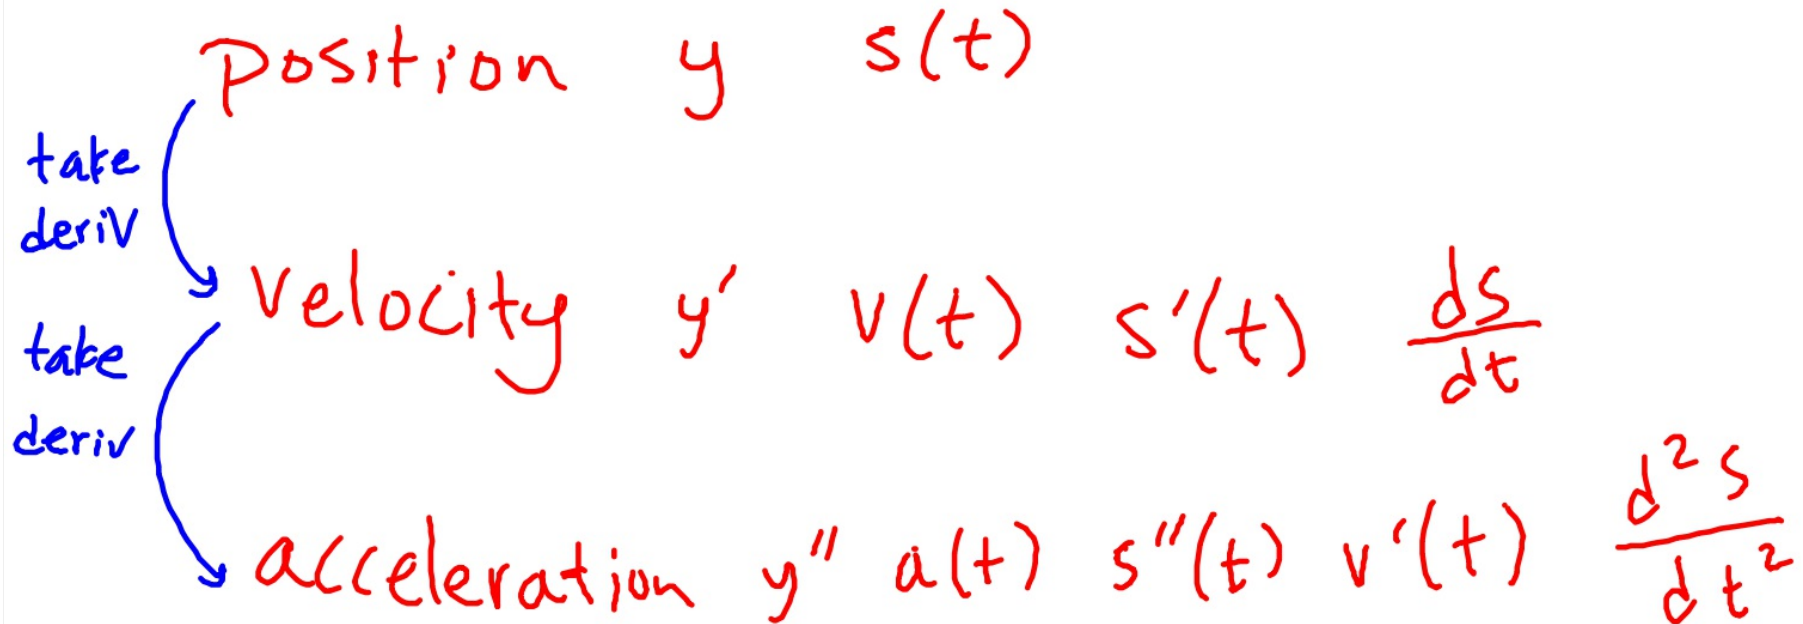 position y s(t)
take
deriv
velocity y' v(t) s'(t) ds/dt
take
deriv
acceleration y" a(t) s"(t) v'(t) d²s/dt²